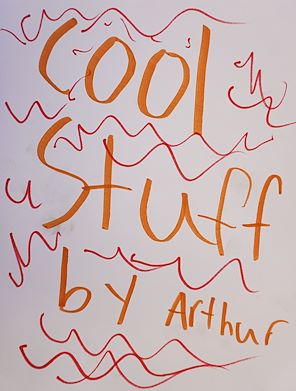 Cool
Stuff
by Arthur